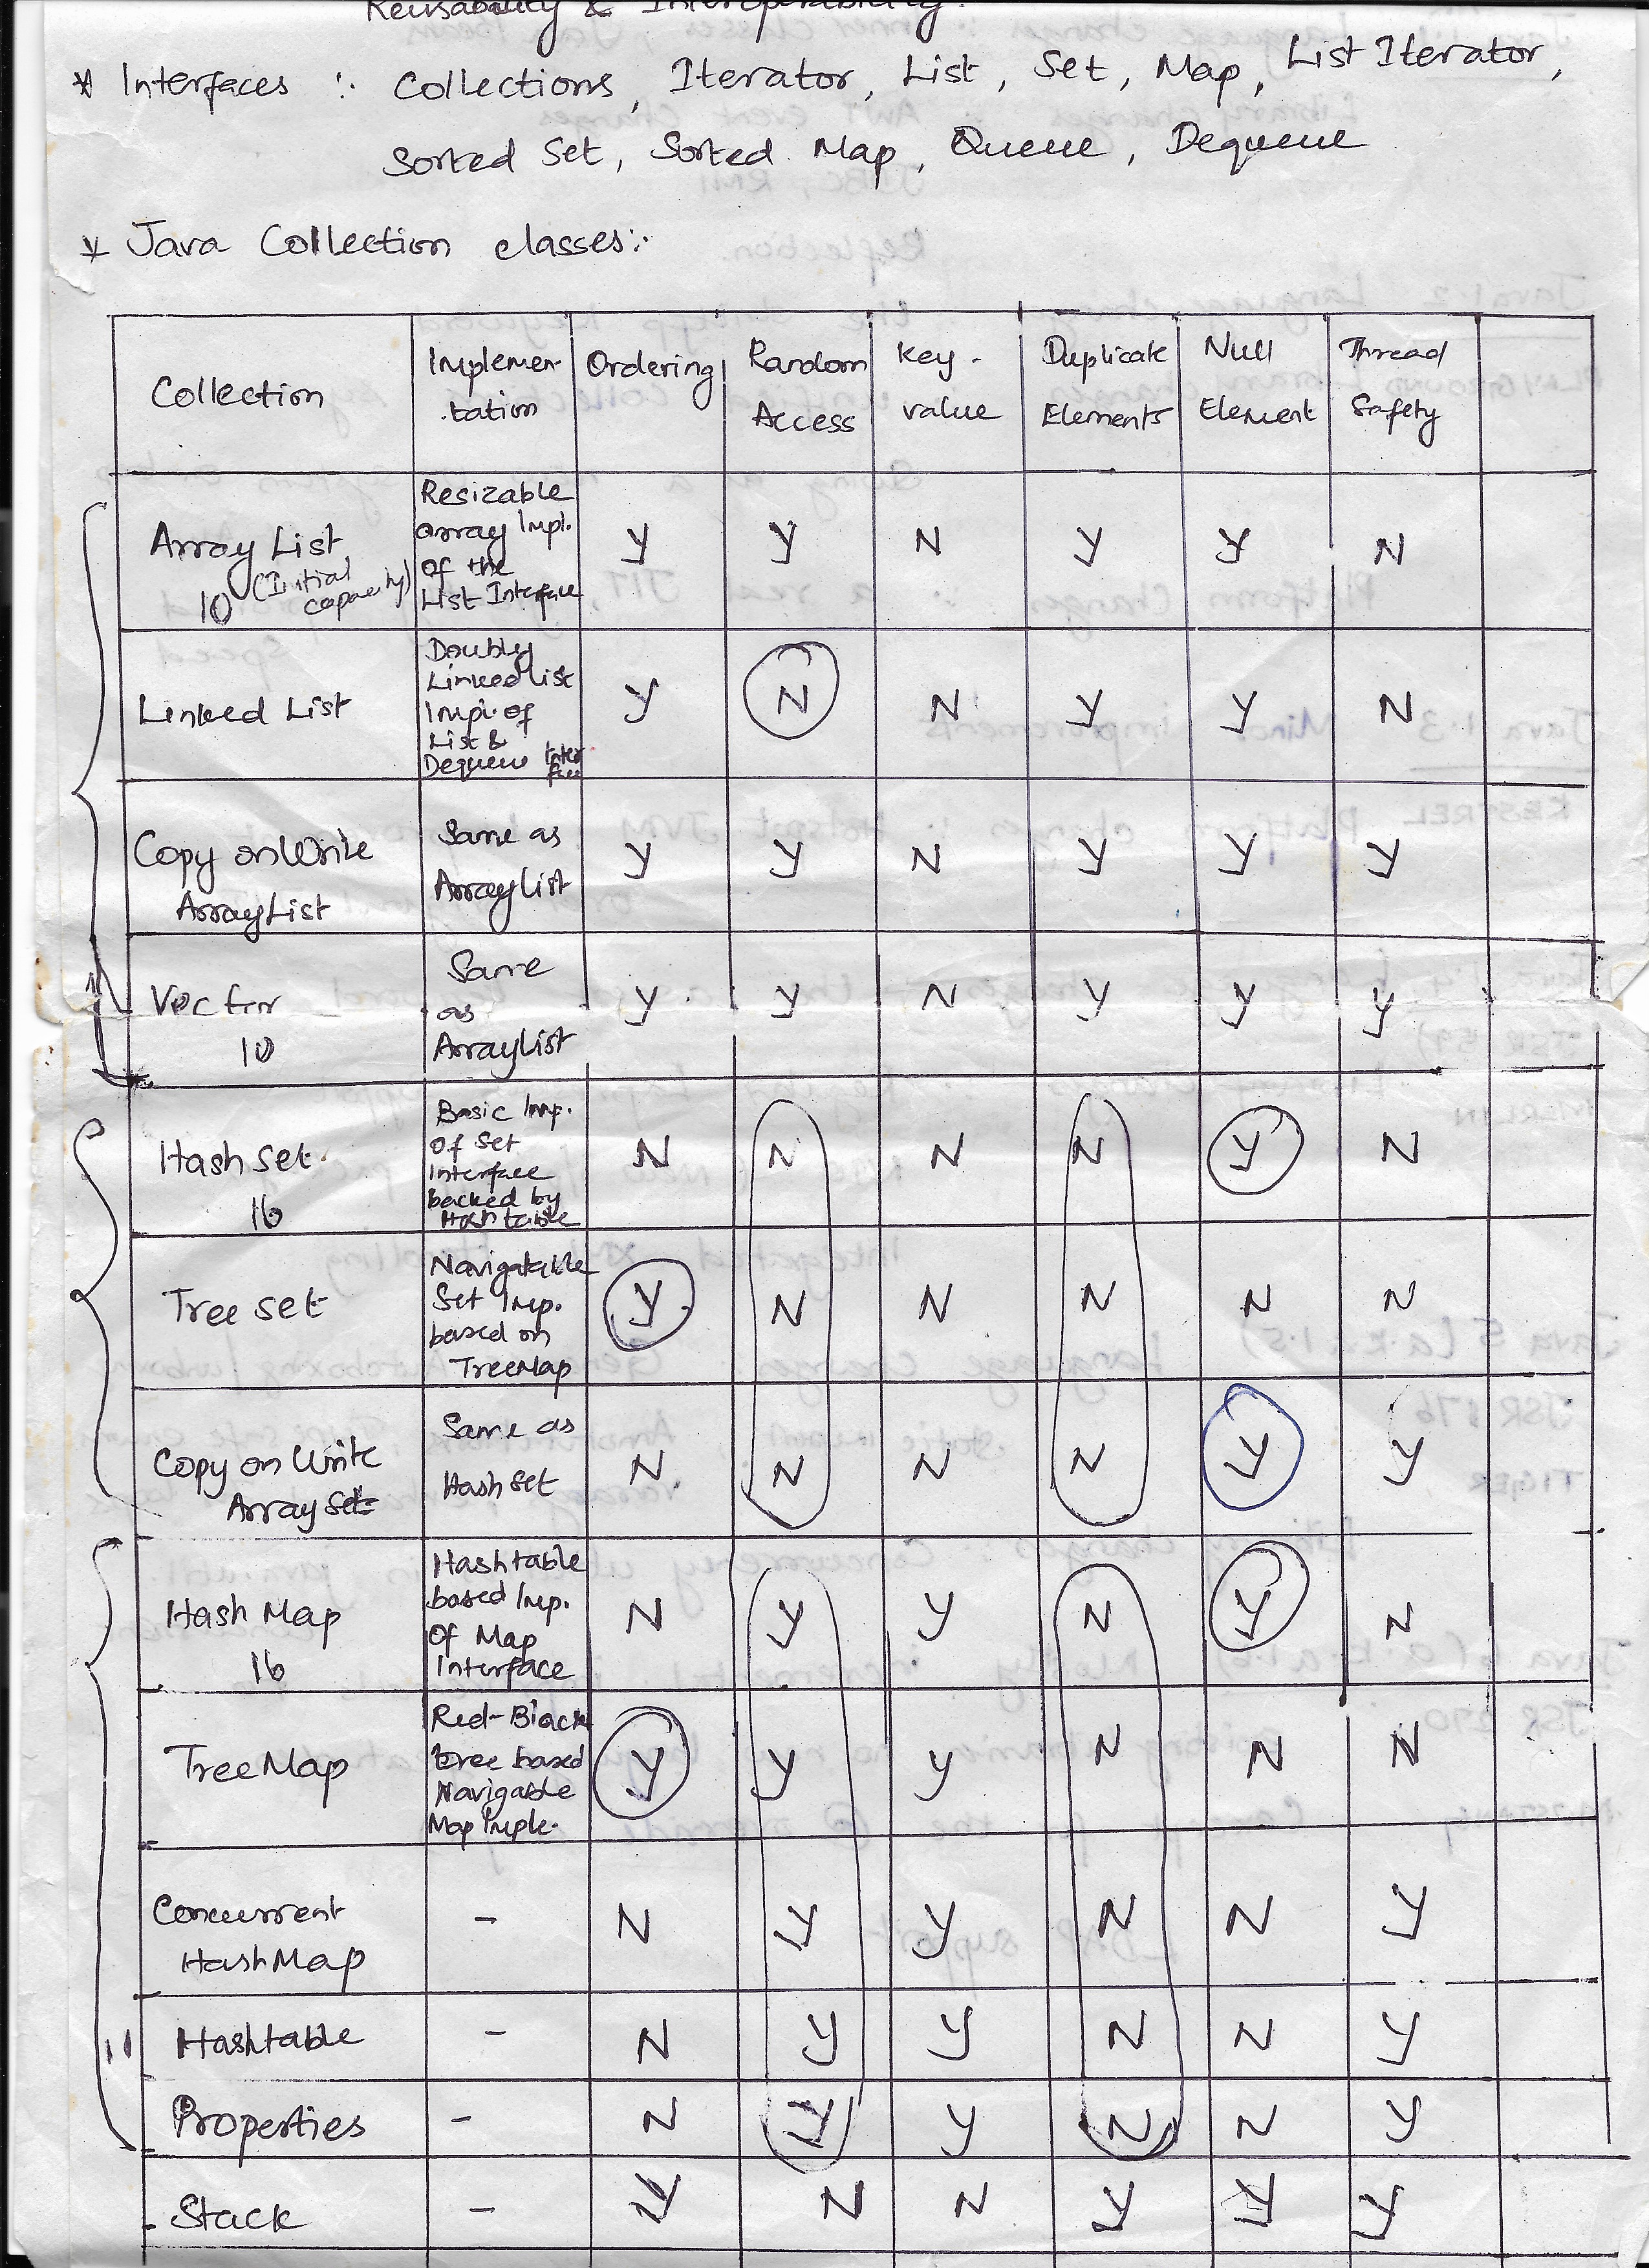 Reusability & Interoperability.
* Interfaces :. Collections, Iterator, List, Set, Map, List Iterator,
Sorted Set, Sorted Map, Queue, Dequeue
* Java Collection classes:.
Collection
Implemen-
tation
Ordering
Random
Access
Key-
value
Duplicate
Elements
Null
Element
Thread
Safety
Array List
10 (Initial
capacity)
Resizable
array Impl.
of the
List Interface
Y Y N Y Y N
Linked List
Doubly
Linked list
Impl. of
List &
Dequeue Inter
face
Y N N Y Y N
Copy on Write
ArrayList
Same as
ArrayList
Y Y N Y Y Y
Vector
10
Same
as
ArrayList
Y Y N Y Y Y
Hash Set
16
Basic Imp.
Of Set
Interface
backed by
Hash table
N N N N Y N
Tree set
Navigatable
Set Imp.
based on
TreeMap
Y N N N N N
Copy on Write
Array Set
Same as
Hash Set
N N N N Y Y
Hash Map
16
Hashtable
based Imp.
Of Map
Interface
N Y Y N Y N
TreeMap
Red-Black
tree based
Navigable
Map Imple.
Y Y Y N N N
Concurrent
HashMap
-
N Y Y N N Y
11 Hashtable - N Y Y N N Y
Properties - N Y Y N N Y
Stack - Y N N Y Y Y